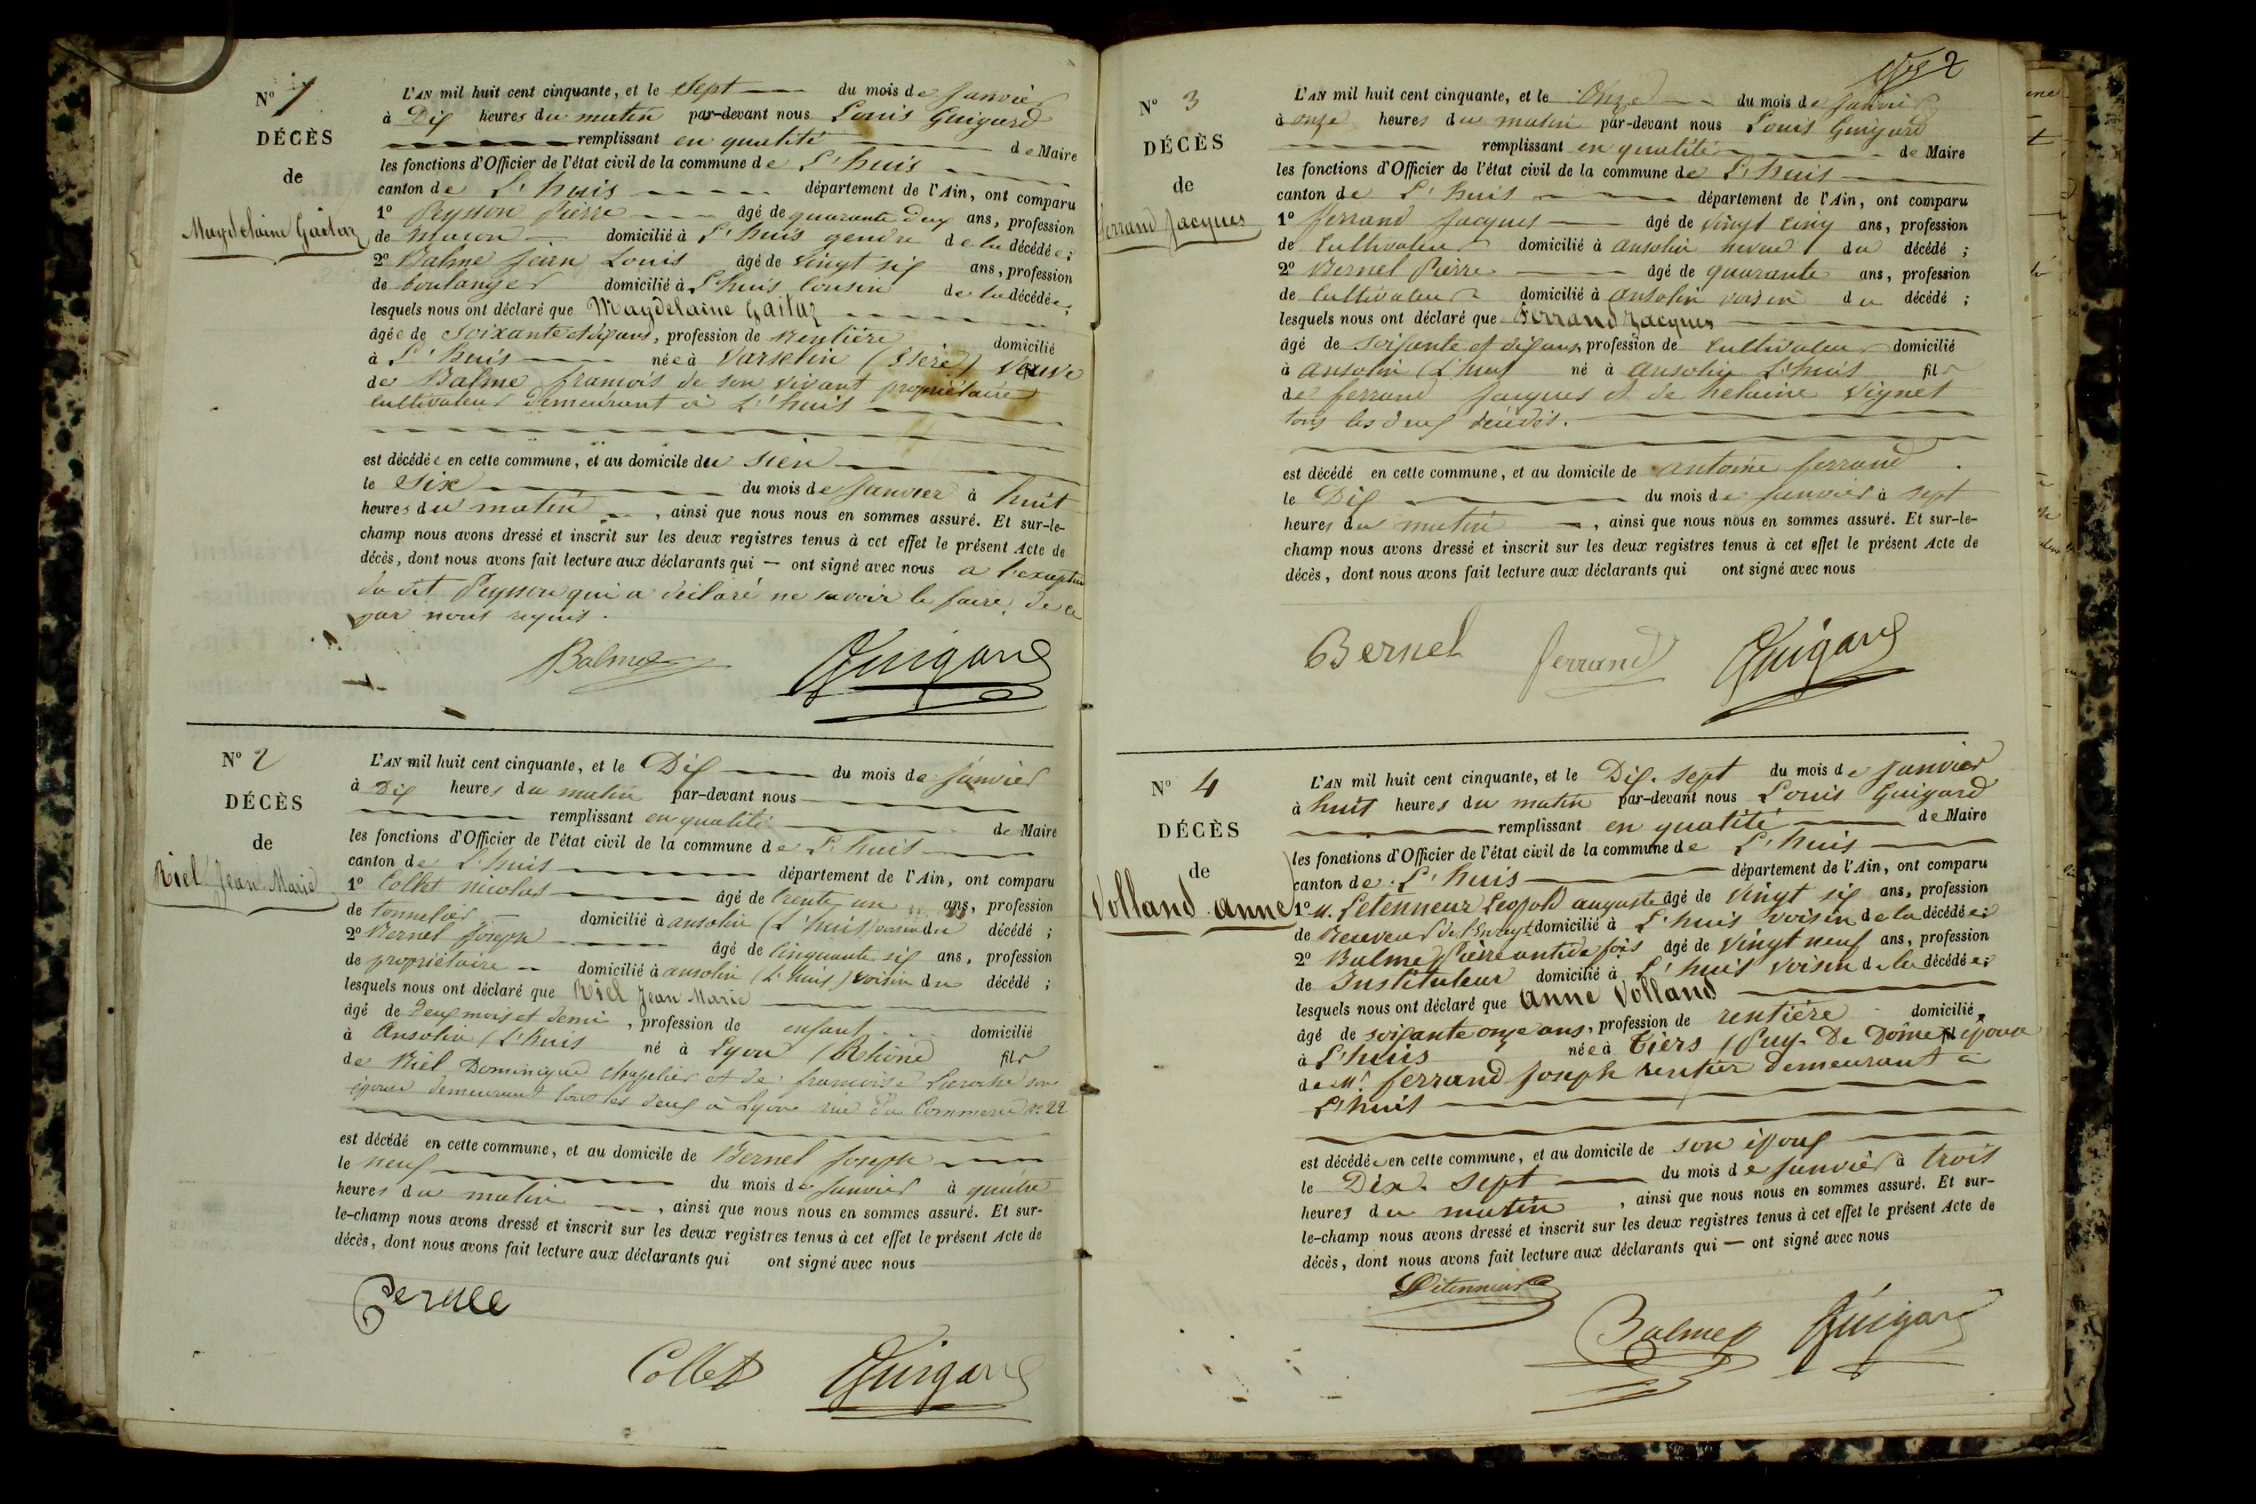 N° 1
DÉCÈS
de
Magdelaine Gaitaz
L'AN mil huit cent cinquante, et le Sept du mois de Janvier
à Dix heures du matin par-devant nous Louis Guigard
remplissant en qualité de Maire
les fonctions d'Officier de l'état civil de la commune de L'huis
canton de L'huis département de l'Ain, ont comparu
1° Peysson Pierre âgé de quarante deux ans, profession
de maçon domicilié à L'huis gendre de la décédée;
2° Balme Jean Louis âgé de vingt six ans, profession
de boulanger domicilié à L'huis cousin de la décédée;
lesquels nous ont déclaré que Magdelaine Gaitaz
âgée de soixante et dix ans, profession de Rentière domicilié
à L'huis née à Varselin (Isère) Veuve
de Balme françois de son vivant propriétaire
cultivateur demeurant à L'huis
est décédée en cette commune, et au domicile du sien
le Six du mois de Janvier à huit
heures du matin, ainsi que nous nous en sommes assuré. Et sur-le-
champ nous avons dressé et inscrit sur les deux registres tenus à cet effet le présent Acte de
décès, dont nous avons fait lecture aux déclarants qui — ont signé avec nous a l'exception
du dit Peysson qui a déclaré ne savoir le faire de ce
par nous requis.
Balme Guigard
N° 2
DÉCÈS
de
Riel Jean Marie
L'AN mil huit cent cinquante, et le Dix du mois de Janvier
à Dix heures du matin par-devant nous
remplissant en qualité de Maire
les fonctions d'Officier de l'état civil de la commune de L'huis
canton de L'huis département de l'Ain, ont comparu
1° Collet Nicolas âgé de trente un ans, profession
de tonnelier domicilié à ansolin (L'huis) voisin du décédé;
2° Bernel Joseph âgé de Cinquante six ans, profession
de propriétaire domicilié à ansolin (L'huis) voisin du décédé;
lesquels nous ont déclaré que Riel Jean Marie
âgé de Deux mois et demi, profession de enfant domicilié
à Ansolin (L'huis né à Lyon (Rhône) fils
de Riel Dominique chapelier et de francoise Laroche son
épouse demeurant tous les deux à Lyon rue du Commerce n° 22
est décédé en cette commune, et au domicile de Bernel Joseph
le neuf du mois de Janvier à quatre
heures du matin, ainsi que nous nous en sommes assuré. Et sur-
le-champ nous avons dressé et inscrit sur les deux registres tenus à cet effet le présent Acte de
décès, dont nous avons fait lecture aux déclarants qui ont signé avec nous
Collet Guigard
2
N° 3
DÉCÈS
de
Ferrand Jacques
L'AN mil huit cent cinquante, et le Onze du mois de Janvier
à onze heures du matin par-devant nous Louis Guigard
remplissant en qualité de Maire
les fonctions d'Officier de l'état civil de la commune de L'huis
canton de L'huis département de l'Ain, ont comparu
1° ferrand Jacques âgé de vingt cinq ans, profession
de Cultivateur domicilié à ansolin neveu du décédé;
2° Bernel Pierre âgé de quarante ans, profession
de Cultivateur domicilié à ansolin voisin du décédé;
lesquels nous ont déclaré que Ferrand Jacques
âgé de soixante et dix ans profession de Cultivateur domicilié
à ansolin (L'huis né à ansolin L'huis fils
de ferrand Jacques et de helaine Vignet
tous les deux décédés.
est décédé en cette commune, et au domicile de antoine ferrand
le Dix du mois de Janvier à sept
heures du matin, ainsi que nous nous en sommes assuré. Et sur-le-
champ nous avons dressé et inscrit sur les deux registres tenus à cet effet le présent Acte de
décès, dont nous avons fait lecture aux déclarants qui ont signé avec nous
Bernel ferrand Guigard
N° 4
DÉCÈS
de
Volland anne
L'AN mil huit cent cinquante, et le Dix-sept du mois de Janvier
à huit heures du matin par-devant nous Louis Guigard
remplissant en qualité de Maire
les fonctions d'Officier de l'état civil de la commune de L'huis
canton de L'huis département de l'Ain, ont comparu
1° M. Letenneur Leopold auguste âgé de vingt six ans, profession
de Receveur de l'Enregt domicilié à L'huis voisin de la décédée;
2° Balme Pierre antide fois âgé de vingt neuf ans, profession
de Instituteur domicilié à L'huis voisin de la décédée;
lesquels nous ont déclaré que anne Volland
âgé de soixante onze ans, profession de rentière domicilié
à L'huis née à Tiers (Puy-De Dôme) épouse
de Mr ferrand Joseph rentier demeurant à
L'huis
est décédée en cette commune, et au domicile de son époux
le Dix-sept du mois de Janvier à trois
heures du matin, ainsi que nous nous en sommes assuré. Et sur-
le-champ nous avons dressé et inscrit sur les deux registres tenus à cet effet le présent Acte de
décès, dont nous avons fait lecture aux déclarants qui — ont signé avec nous
Letenneur
Balme Guigard